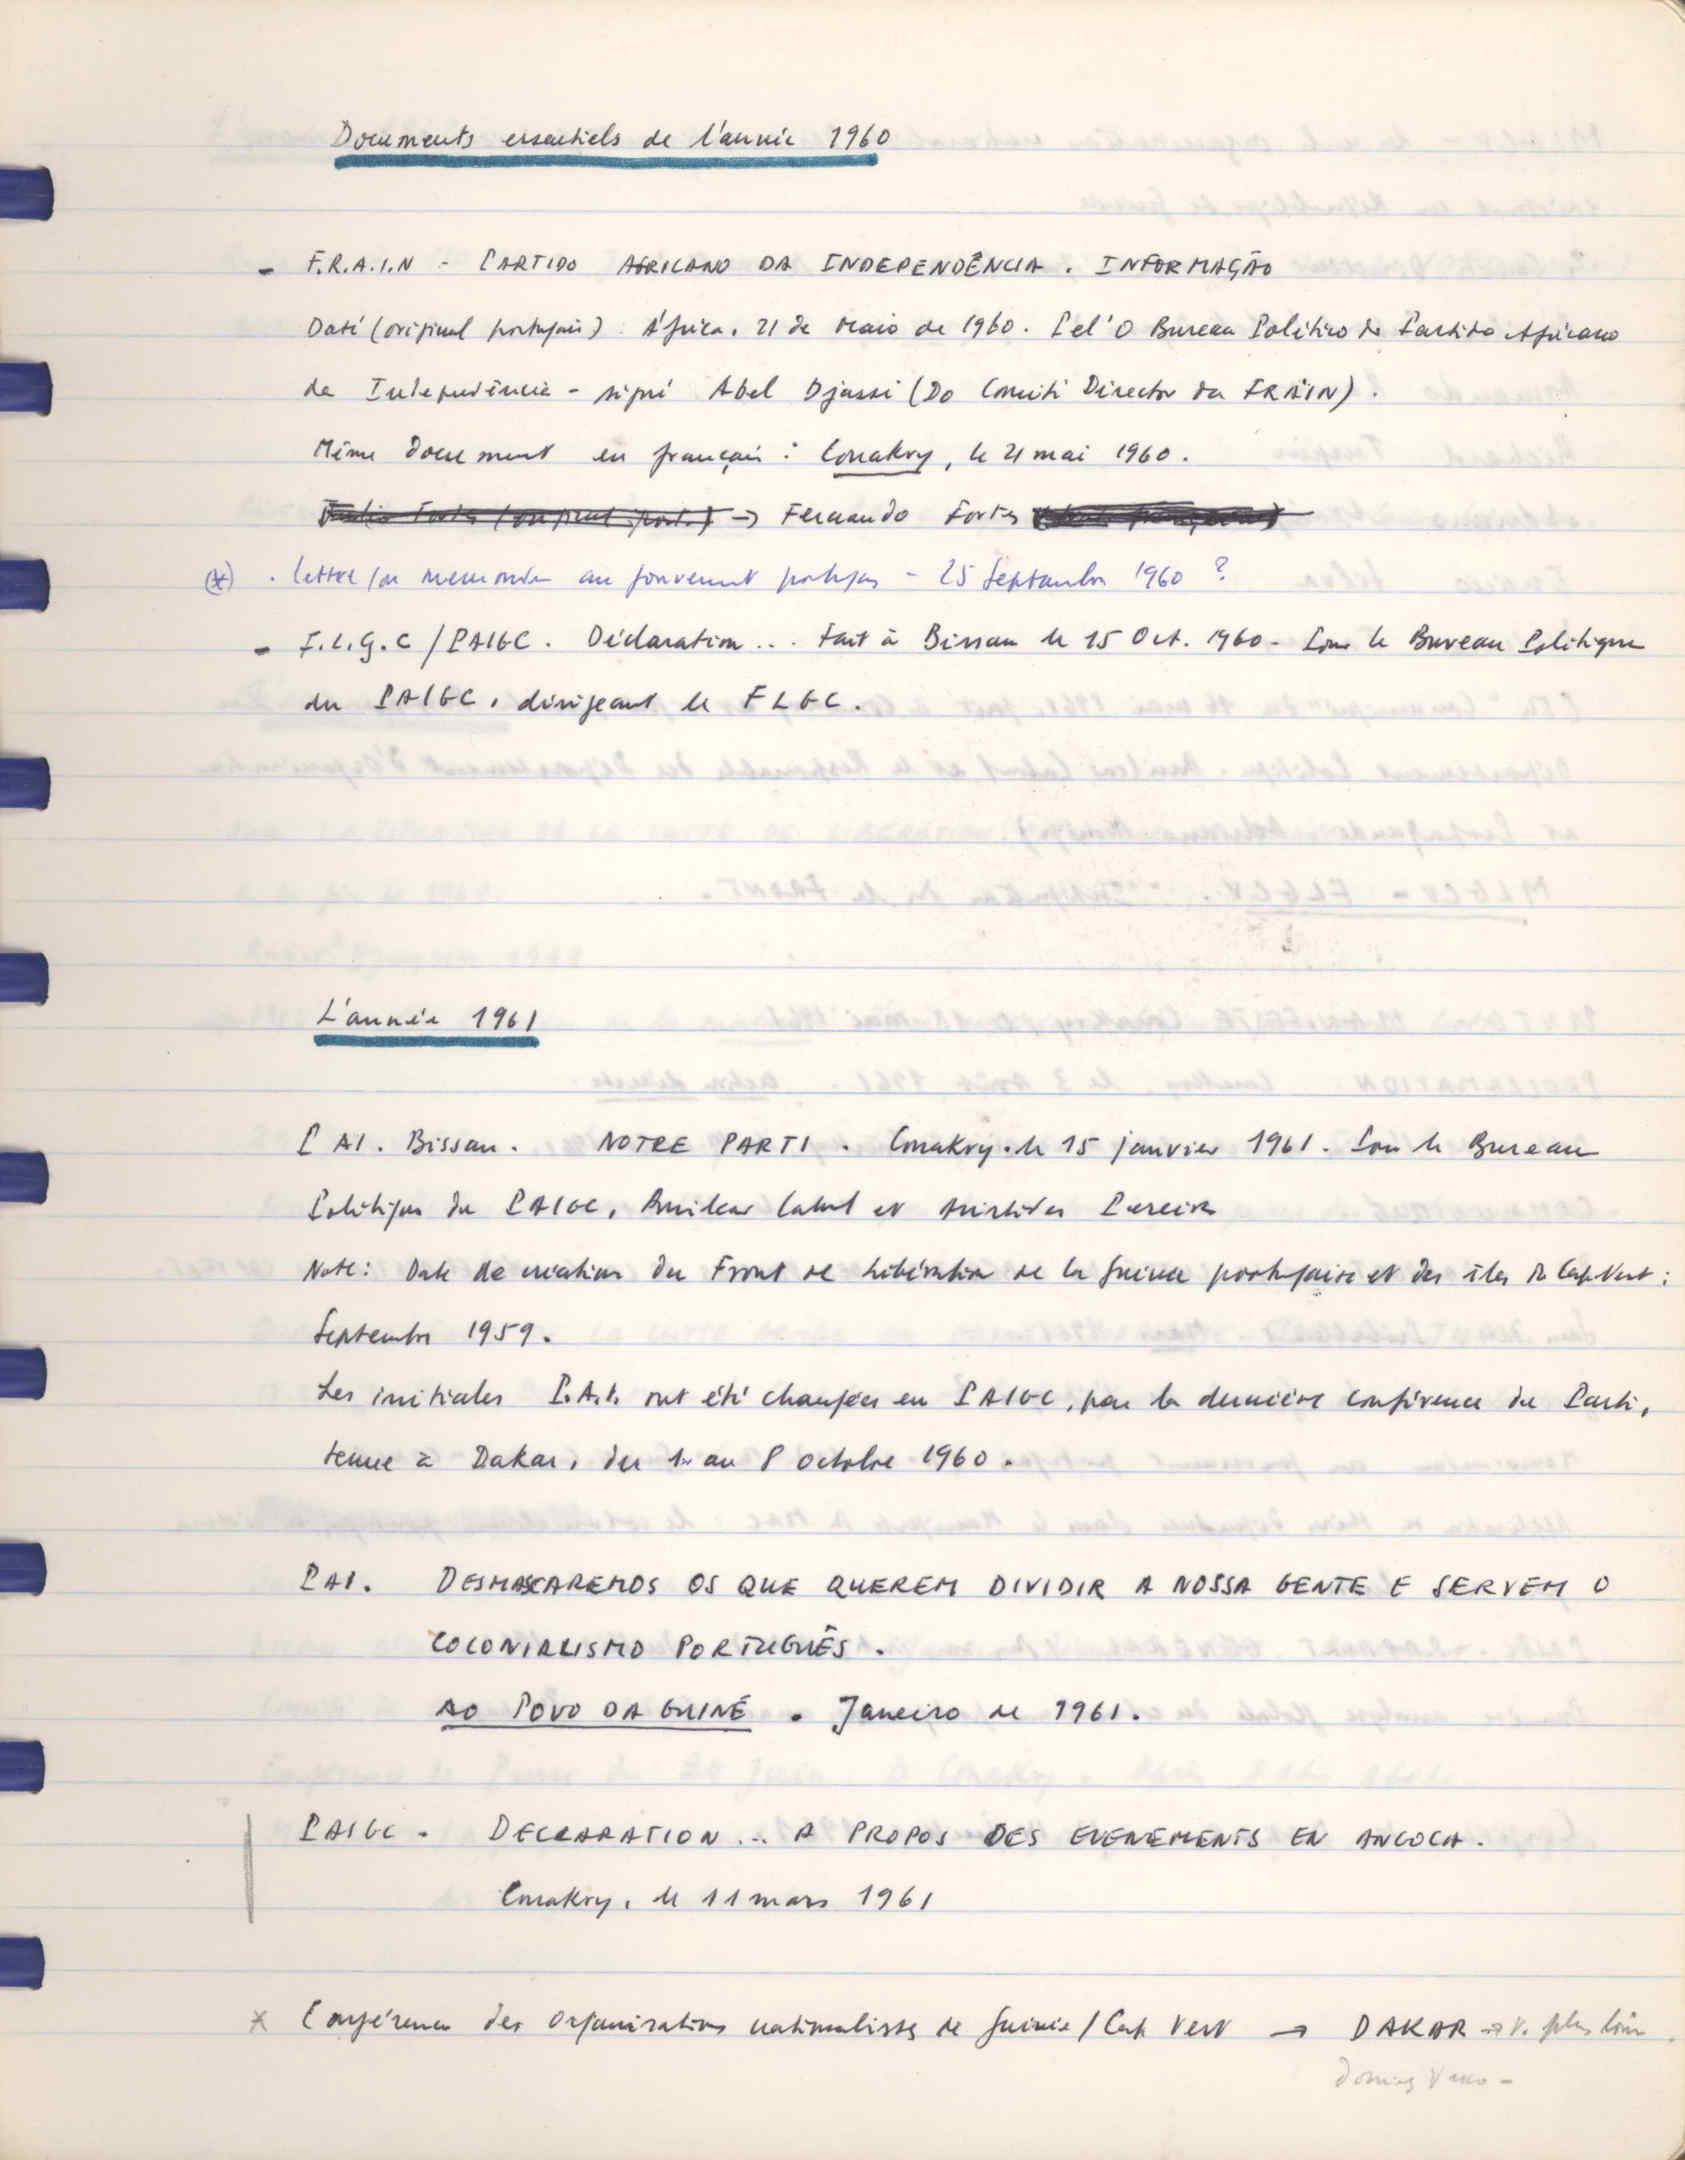 Documents essentiels de l'année 1960
- F.R.A.I.N - PARTIDO AFRICANO DA INDEPENDÊNCIA. INFORMAÇÃO
Daté (original portugais) : África, 21 de Maio de 1960. Pel'O Bureau Político do Partido Africano
da Independência - signé Abel Djassi (Do Comité Director da FRAIN).
Même document en français : Conakry, le 21 mai 1960.
→ Fernando Fortes
(*) . lettre / ou au portugais - 25 Septembre 1960 ?
- F.L.G.C / PAIGC. Déclaration... Fait à Bissau le 15 Oct. 1960 - Pour le Bureau Politique
du PAIGC, dirigeant le FLGC.
L'année 1961
PAI. Bissau. NOTRE PARTI. Conakry. le 15 janvier 1961. Pour le Bureau
Politique du PAIGC, Amilcar Cabral et Aristides Pereira
Note : Date de création du Front de Libération de la Guinée portugaise et des îles du Cap Vert :
Septembre 1959.
Les initiales P.A.I. ont été changées en PAIGC, par la dernière conférence du Parti,
tenue à Dakar, du 1er au 8 octobre 1960.
PAI. DESMASCAREMOS OS QUE QUEREM DIVIDIR A NOSSA GENTE E SERVEM O
COLONIALISMO PORTUGUÊS.
AO POVO DA GUINÉ. Janeiro de 1961.
PAIGC. DECLARATION... A PROPOS DES EVENEMENTS EN ANGOLA.
Conakry, le 11 mars 1961
* Conférence des organisations nationalistes de Guinée / Cap Vert → DAKAR → v. plus loin